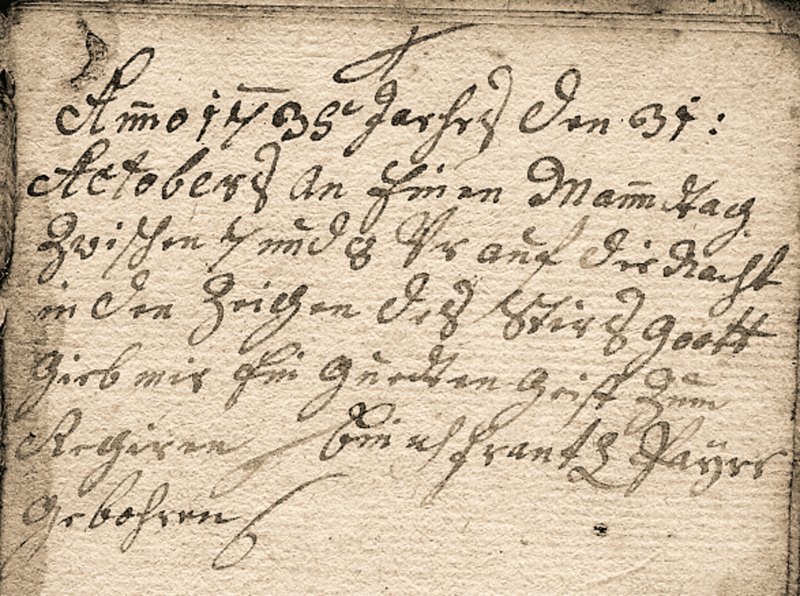 Anno 1735 Jarhrs den 31:
Actobers An Einen Manntag
Zwischen 7 und 8 Vr auf die Nacht
in den Zeichen des Stirs Goott
Gieb mir Ein Guedten Geist Zum
Regiren Bin ich Frantz Payrr
Gebohren